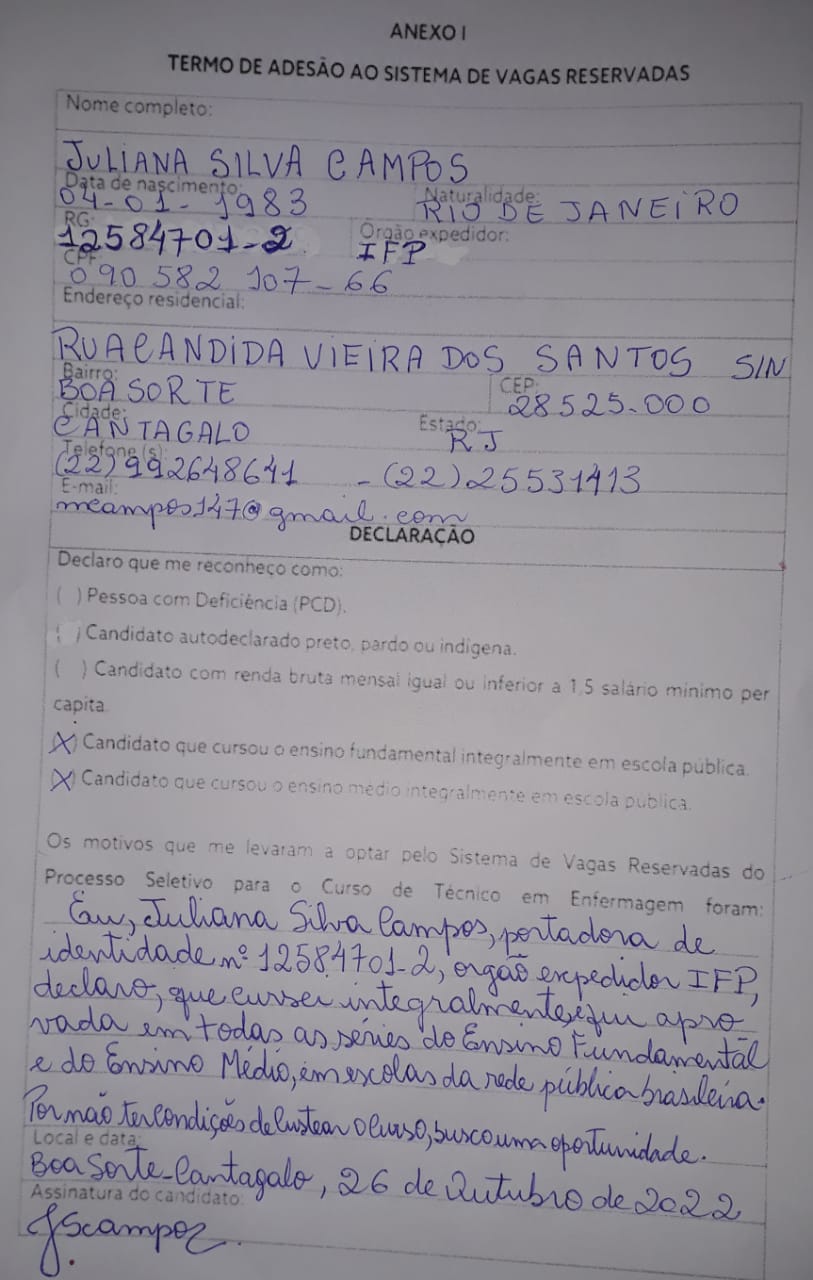 ANEXO I
TERMO DE ADESÃO AO SISTEMA DE VAGAS RESERVADAS
Nome completo:
JULIANA SILVA CAMPOS
Data de nascimento: Naturalidade:
04-01-1983 RIO DE JANEIRO
RG: Órgão expedidor:
12584701-2 IFP
CPF:
090 582 107-66
Endereço residencial:
RUA CANDIDA VIEIRA DOS SANTOS S/N
Bairro: CEP:
BOA SORTE 28525.000
Cidade: Estado:
CANTAGALO RJ
Telefone (s):
(22) 992648641 - (22) 25531413
E-mail:
mcampos147@gmail.com
DECLARAÇÃO
Declaro que me reconheço como:
( ) Pessoa com Deficiência (PCD).
( ) Candidato autodeclarado preto, pardo ou indígena.
( ) Candidato com renda bruta mensal igual ou inferior a 1,5 salário mínimo per
capita.
(X) Candidato que cursou o ensino fundamental integralmente em escola pública.
(X) Candidato que cursou o ensino médio integralmente em escola pública.
Os motivos que me levaram a optar pelo Sistema de Vagas Reservadas do
Processo Seletivo para o Curso de Técnico em Enfermagem foram:
Eu, Juliana Silva Campos, portadora de
identidade nº 12584701-2, orgão expedidor IFP,
declaro, que cursei integralmente, e fui apro
vada em todas as séries do Ensino Fundamental
e do Ensino Médio, em escolas da rede pública brasileira.
Por não ter condições de custear o curso, busco uma oportunidade.
Local e data:
Boa Sorte-Cantagalo, 26 de Outubro de 2022
Assinatura do candidato:
JScampos.